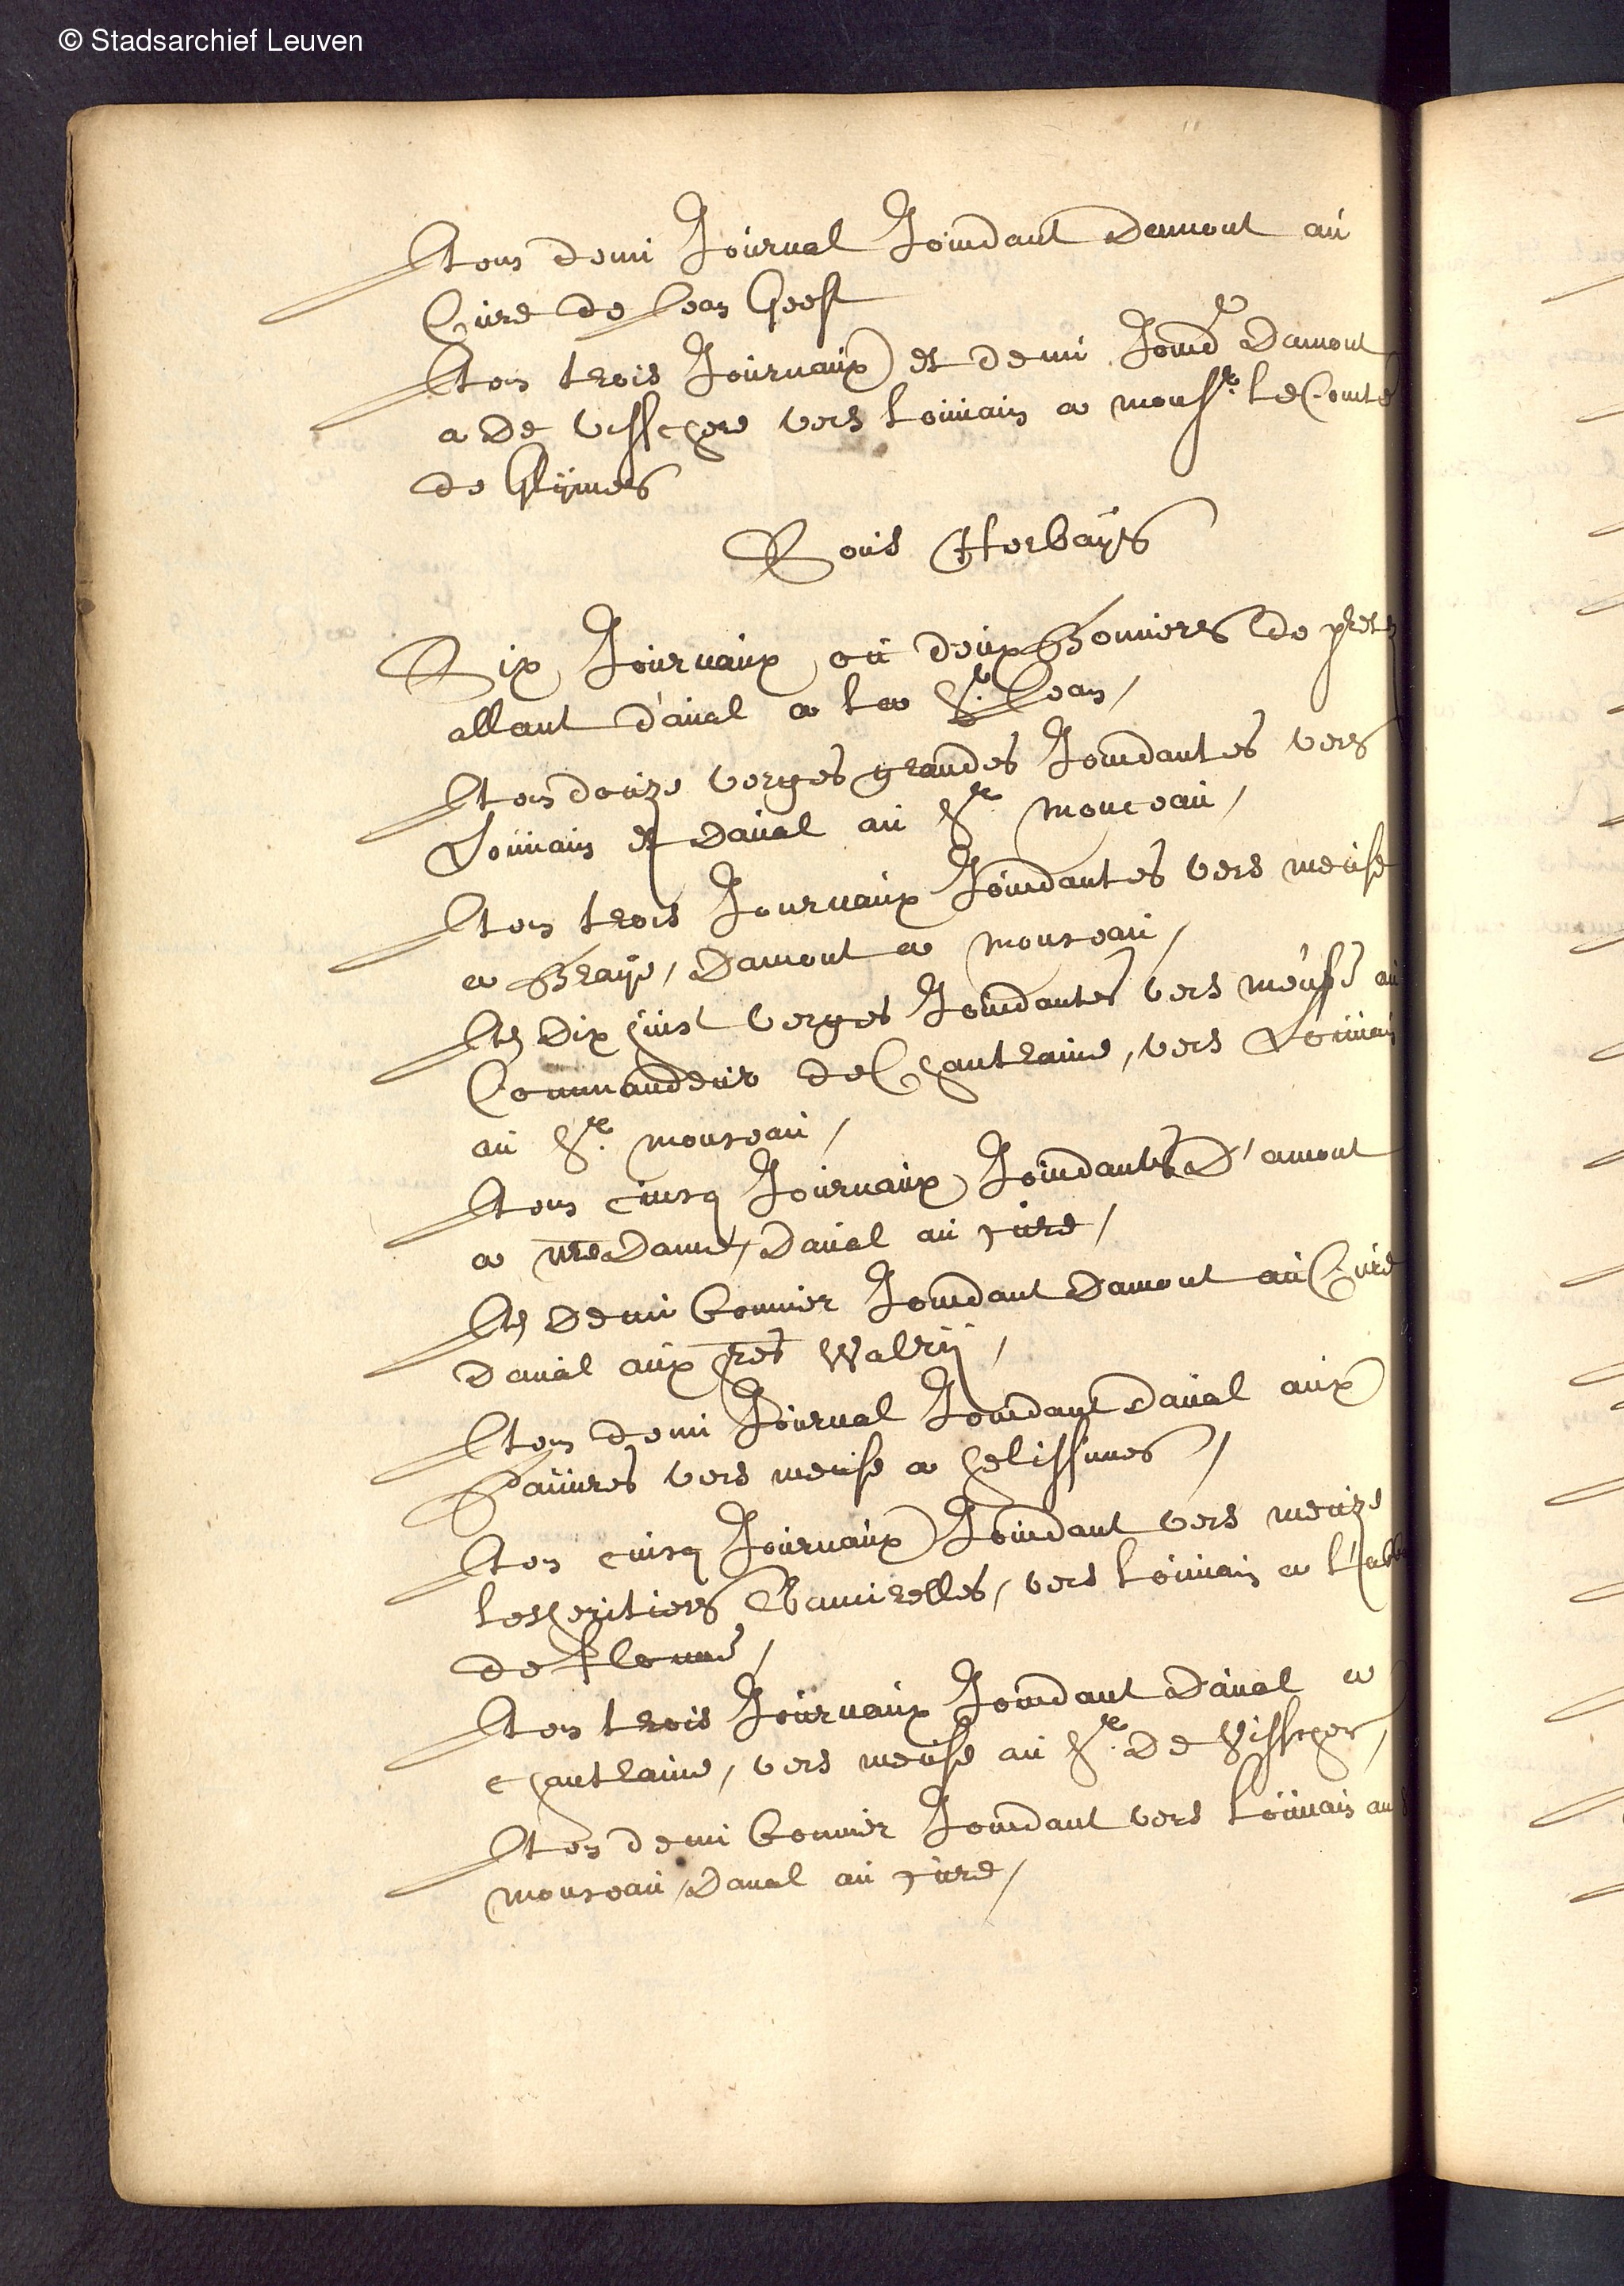 © Stadsarchief Leuven
Item demi Journal Joindant Damont au
Cure de Jean Geest
Item trois Journaux et demi Joind.t Damont
a De Visschere vers Louvain a Mons.r le Comte
de Glijmes
Sous Herbaijs
Six Journaux ou deux Bonniers de prets
allant d'aval a la S.t Jean /
Item douze verges grandes Joindantes vers
Louvain et Daval au S.r Monceau /
Item trois Journaux Joindantes vers meuse
a Braije / Damont a Monceau /
It dix huict verges Joindantes vers meuse au
Commandeur de Chantraine, vers Louvain
au S.r Monceau /
Item cincq Journaux Joindants D'amont
a nre Dame / Daval au cure /
It Demi bonnier Joindant Damont au Cure
Daval aux res Walrij /
Item demi Journal Joindant Daval aux
Pauvres vers meuse a helissines /
Item cincq Journaux Joindant vers meuze
les heritiers vers Louvain a l'abb
de flonne /
Item trois Journaux Joindant Daval a
Chantraine, vers meuse au S.r De Visscher /
Item demi bonnier Joindant vers Louvain au
Monceau / Daval au cure /